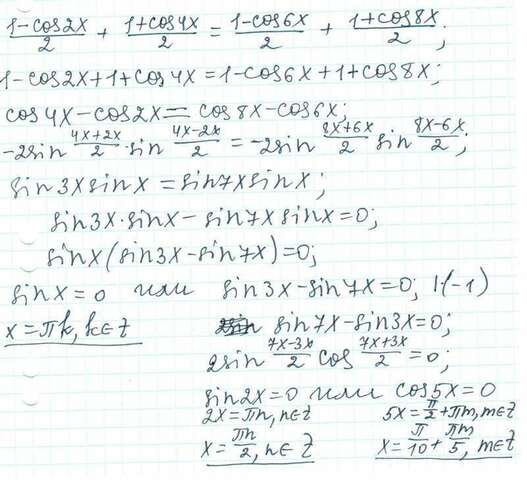 (1-cos2x)/2 + (1+cos4x)/2 = (1-cos6x)/2 + (1+cos8x)/2;
1-cos2x+1+cos4x=1-cos6x+1+cos8x;
cos4x-cos2x=cos8x-cos6x;
-2sin (4x+2x)/2 · sin (4x-2x)/2 = -2sin (8x+6x)/2 sin (8x-6x)/2;
sin3xsinx=sin7xsinx;
sin3x·sinx-sin7xsinx=0;
sinx(sin3x-sin7x)=0;
sinx=0 или sin3x-sin7x=0; |·(-1)
x=πk, k∈Z sin7x-sin3x=0;
2sin (7x-3x)/2 cos (7x+3x)/2 =0;
sin2x=0 или cos5x=0
2x=πn, n∈Z 5x=π/2+πm, m∈Z
x=πn/2, n∈Z x=π/10+πm/5, m∈Z